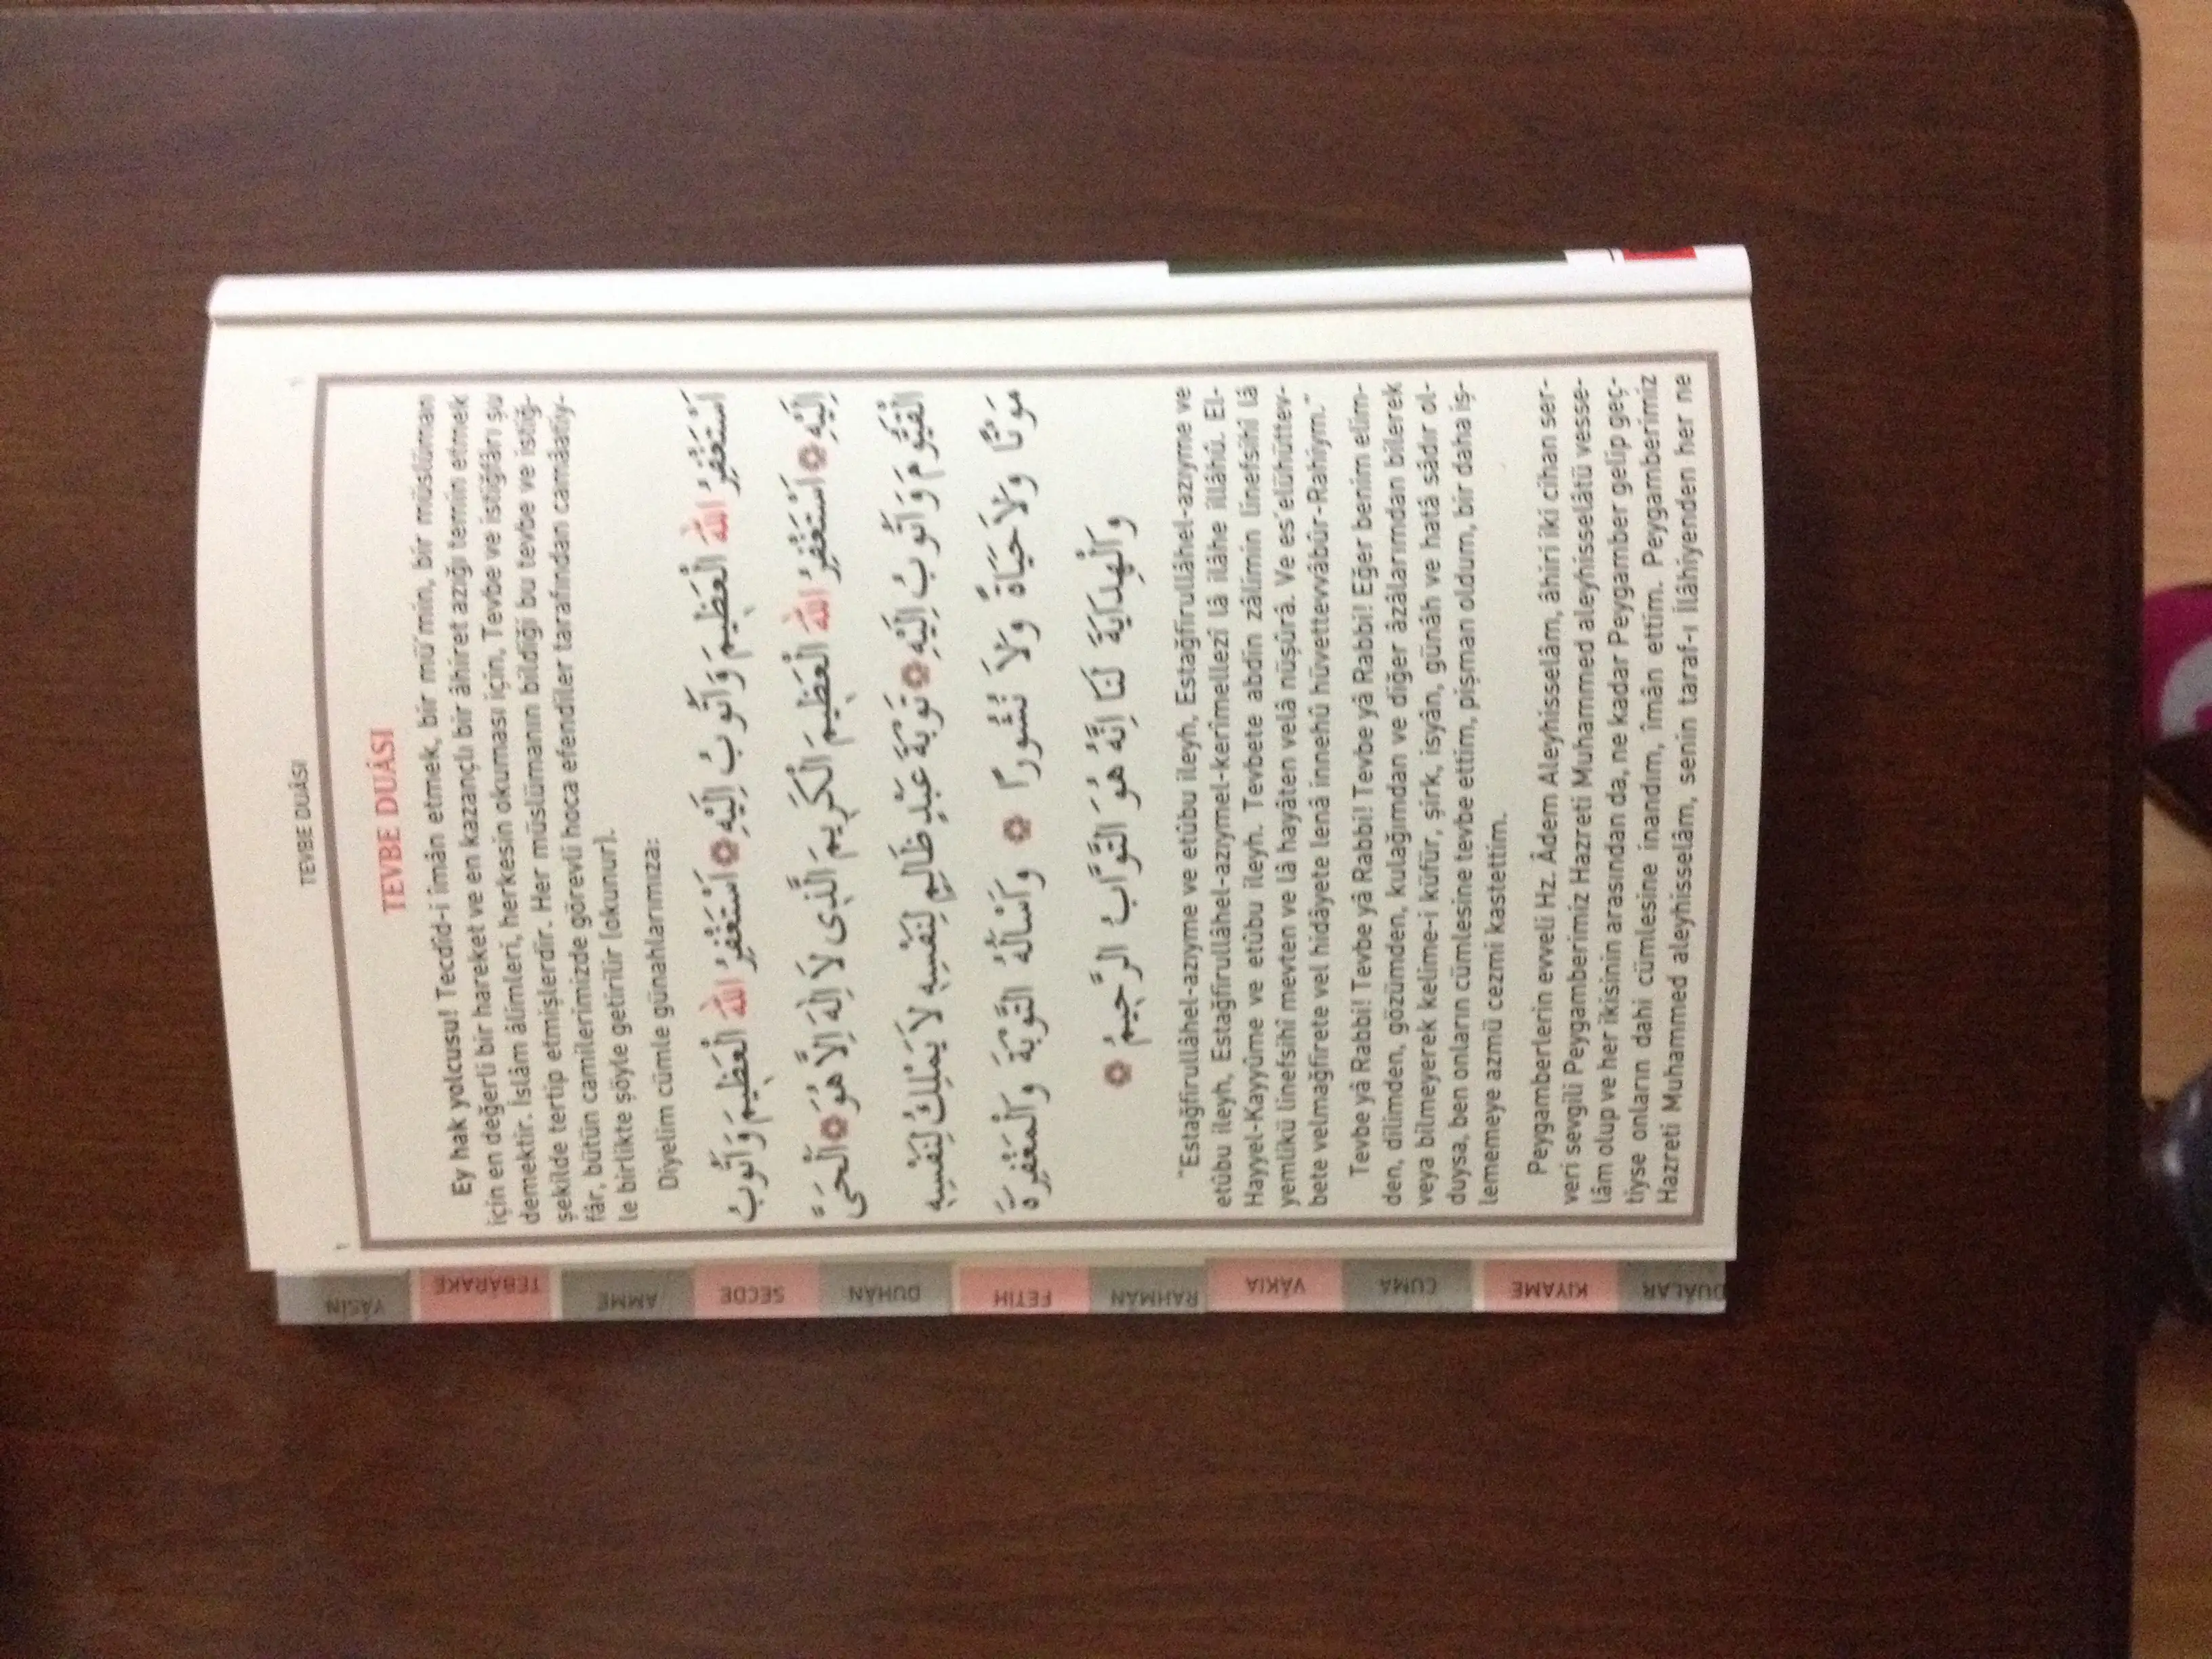 TEVBE DUÂSI
TEVBE DUÂSI
Ey hak yolcusu! Tecdîd-i îmân etmek, bir mü'min, bir müslüman
için en değerli bir hareket ve en kazançlı bir âhiret azığı temin etmek
demektir. İslâm âlimleri, herkesin okuması için, Tevbe ve istiğfârı şu
şekilde tertip etmişlerdir. Her müslümanın bildiği bu tevbe ve istiğ-
fâr, bütün camilerimizde görevli hoca efendiler tarafından camâatiy-
le birlikte şöyle getirilir (okunur).
Diyelim cümle günahlarımıza:
اَسْتَغْفِرُ اللهَ الْعَظِيمَ وَاَتُوبُ اِلَيْهِ ۞ اَسْتَغْفِرُ اللهَ الْعَظِيمَ وَاَتُوبُ
اِلَيْهِ ۞ اَسْتَغْفِرُ اللهَ الْعَظِيمَ الْكَرِيمَ الَّذِى لَا اِلٰهَ اِلَّا هُوَ ۞ اَلْحَىَّ
الْقَيُّومَ وَاَتُوبُ اِلَيْهِ ۞ تَوْبَةَ عَبْدٍ ظَالِمٍ لِنَفْسِهِ لَا يَمْلِكُ لِنَفْسِهِ
مَوْتًا وَلَا حَيَاةً وَلَا نُشُورًا ۞ وَاَسْأَلُهُ التَّوْبَةَ وَالْمَغْفِرَةَ
وَالْهِدَايَةَ لَنَا اِنَّهُ هُوَ التَّوَّابُ الرَّحِيمُ ۞
"Estağfirullâhel-azıyme ve etûbu ileyh, Estağfirullâhel-azıyme ve
etûbu ileyh, Estağfirullâhel-azıymel-kerîmellezî lâ ilâhe illâhû. El-
Hayyel-Kayyûme ve etûbu ileyh. Tevbete abdin zâlimin linefsihî lâ
yemlikü linefsihî mevten ve lâ hayâten velâ nüşûrâ. Ve es'elühüttev-
bete velmağfirete vel hidâyete lenâ innehû hüvettevvâbür-Rahîym."
Tevbe yâ Rabbi! Tevbe yâ Rabbi! Tevbe yâ Rabbi! Eğer benim elim-
den, dilimden, gözümden, kulağımdan ve diğer âzâlarımdan bilerek
veya bilmeyerek kelime-i küfür, şirk, isyân, günâh ve hatâ sâdır ol-
duysa, ben onların cümlesine tevbe ettim, pişman oldum, bir daha iş-
lememeye azmü cezmi kastettim.
Peygamberlerin evveli Hz. Âdem Aleyhisselâm, âhiri iki cihan ser-
veri sevgili Peygamberimiz Hazreti Muhammed aleyhisselâtü vesse-
lâm olup ve her ikisinin arasından da, ne kadar Peygamber gelip geç-
tiyse onların dahi cümlesine inandım, îmân ettim. Peygamberimiz
Hazreti Muhammed aleyhisselâm, senin taraf-ı ilâhiyenden her ne
YÂSİN
TEBÂRAKE
AMME
SECDE
DUHÂN
FETİH
RAHMÂN
VÂKIA
CUMA
KIYAME
DUÂLAR